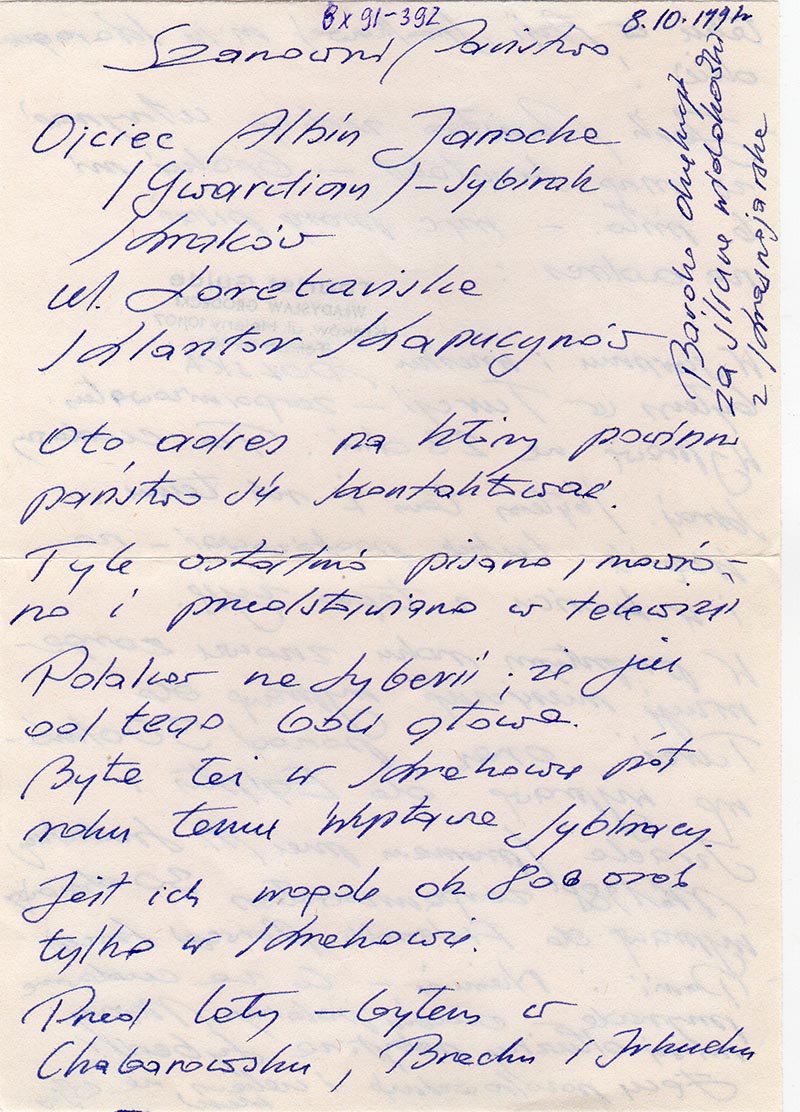 8x91-392
8.10.1991r
Szanowni Państwo
Ojciec Albin Janocha
/Gwardian/-Sybirak
Kraków
ul. Loretańska
Klasztor Kapucynów
Oto adres na który powinni
państwo się kontaktować.
Tyle ostatnio pisano, mówio-
no i przedstawiano w telewizji
Polaków na Syberii, że już
od tego boli głowa.
Była też w Krakowie pół
roku temu wystawa Sybiracy.
Jest ich w ogóle ok 800 osób
tylko w Krakowie.
Przed laty - byłem w
Chabarowsku, Bracku i Irkucku
Bardzo dziękuję
za śliczne widokówki
z Krasnojarska